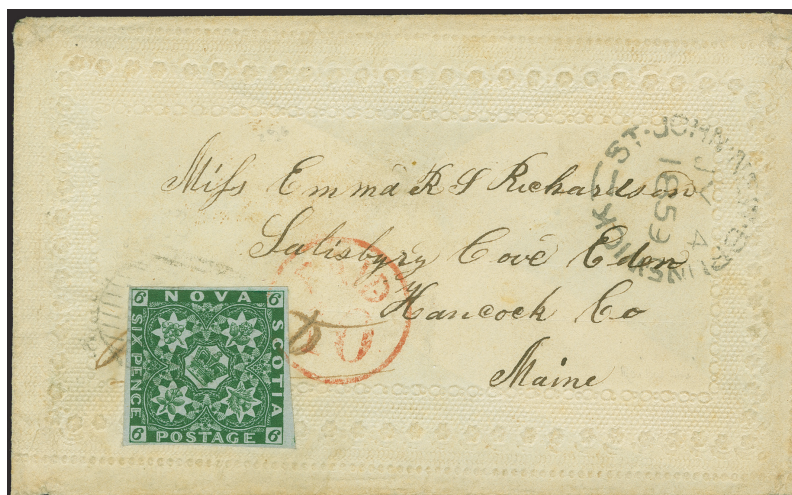 Miss Emma R S Richardson
Salisbyry Cove Eden
Hancock Co
Maine
ST. JOHN. NEW BRUNSWICK
JY 4
1853
PAID
10
6 NOVA 6
SIX PENCE
SCOTIA
6 POSTAGE 6